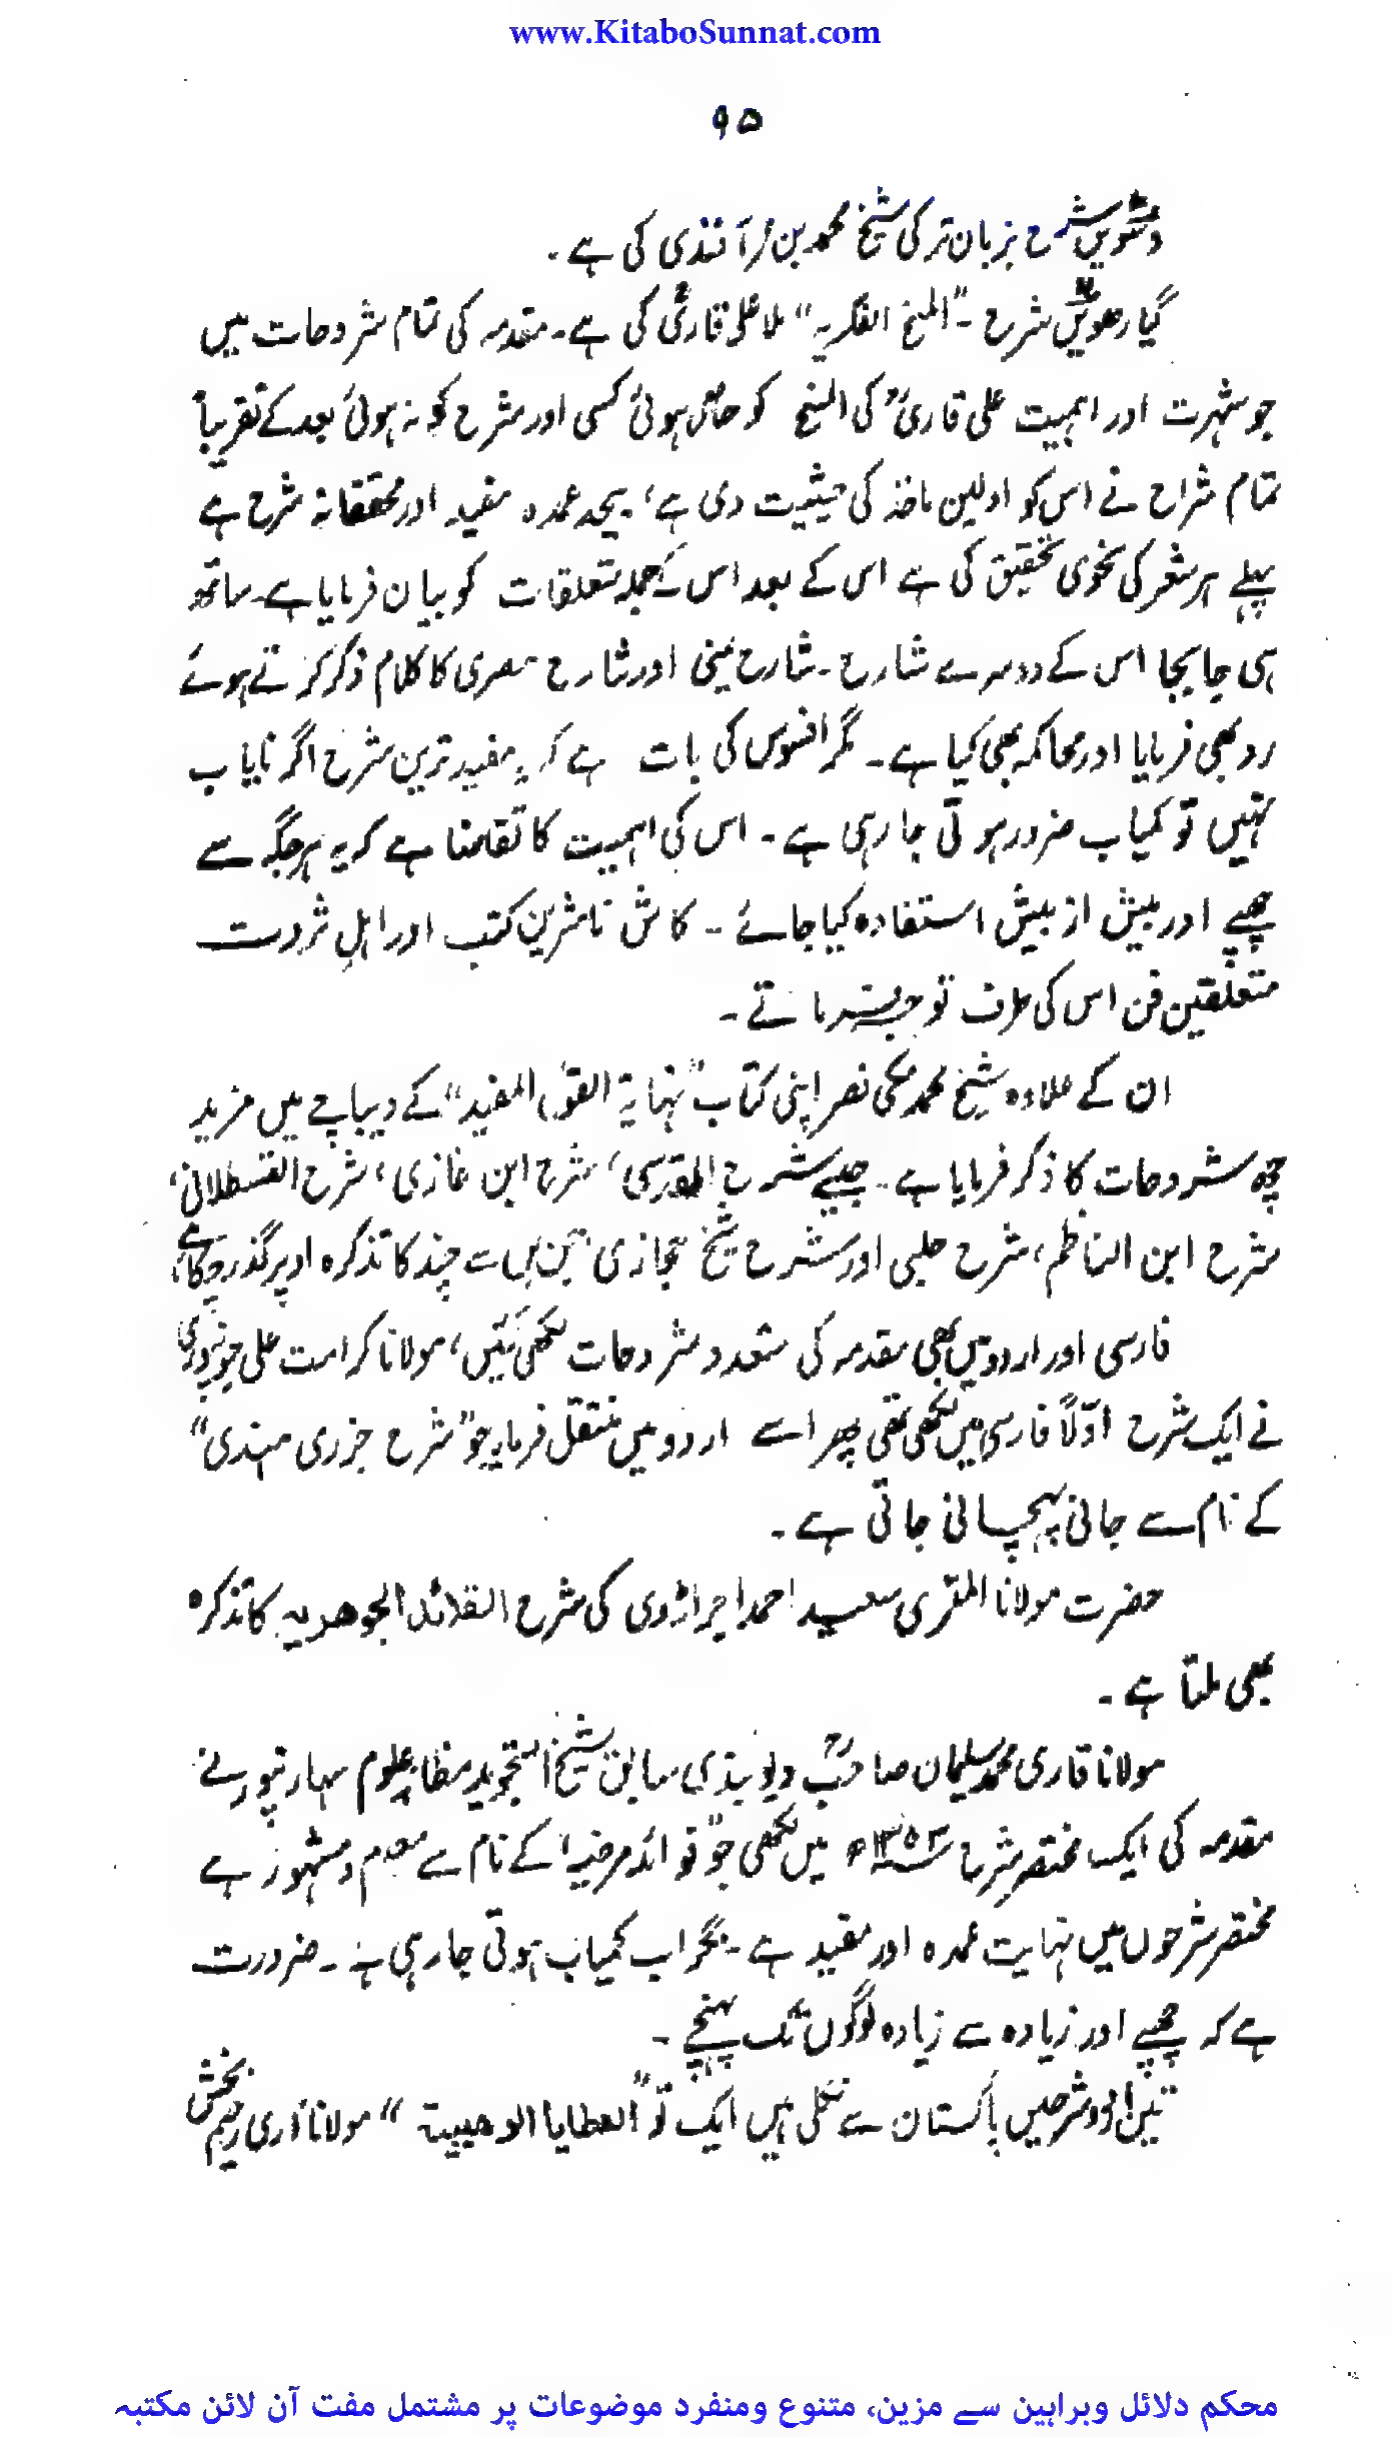 www.KitaboSunnat.com
۹۵
دسویں شرح بزبان ترکی شیخ محمد بن آفندی کی ہے۔
گیارھویں شرح ۔ "المنح الفکریہ" ملا علی قاریؒ کی ہے۔ مقدمہ کی تمام شروحات میں
جو شہرت اور اہمیت علی قاریؒ کی المنح کو حاصل ہوئی کسی اور شرح کو نہ ہوئی بعد کے تقریباً
تمام شراح نے اس کو اولین ماخذ کی حیثیت دی ہے، بیحد عمدہ مفید اور محققانہ شرح ہے
پہلے ہر شعر کی نحوی تحقیق کی ہے اس کے بعد اس کے جملہ متعلقات کو بیان فرمایا ہے۔ ساتھ
ہی جابجا اس کے دوسرے شارح ۔ شارح یمنی اور شارح مصری کا کلام ذکر کرتے ہوئے
رد بھی فرمایا اور محاکمہ بھی کیا ہے۔ مگر افسوس کی بات ہے کہ یہ مفید ترین شرح اگر نایاب
نہیں تو کمیاب ضرور ہوتی جا رہی ہے ۔ اس کی اہمیت کا تقاضا ہے کہ یہ ہر جگہ سے
چھپے اور بیش از بیش استفادہ کیا جائے ۔ کاش ناشرین کتب اور اہلِ ثروت
متعلقین فن اس کی طرف توجہ فرماتے ۔
ان کے علاوہ شیخ محمد مکی نصر اپنی کتاب "نہایۃ القول المفید" کے دیباچے میں مزید
چھ شروحات کا ذکر فرمایا ہے ۔ جیسے شرح المقدسی، شرح ابن غازی، شرح القسطلانی،
شرح ابن الناظم، شرح حلبی اور شرح شیخ حجازی جن میں سے چند کا تذکرہ اوپر گذر چکا ہے،
فارسی اور اردو میں بھی مقدمہ کی متعدد شروحات لکھی گئیں، مولانا کرامت علی جونپوری
نے ایک شرح اوّلاً فارسی میں لکھی تھی پھر اسے اردو میں منتقل فرمایا جو "شرح جزری ہندی"
کے نام سے جانی پہچانی جاتی ہے ۔
حضرت مولانا المقری سعید احمد اجراڑوی کی شرح القلائد الجوھریہ کا تذکرہ
بھی ملتا ہے ۔
مولانا قاری محمد سلیمان صاحبؒ دیوبندی سابق شیخ التجوید مظاہر علوم سہارنپور نے
مقدمہ کی ایک مختصر شرح ۱۳۵۲ھ میں لکھی جو "فوائد مرضیہ" کے نام سے معلوم و مشہور ہے
مختصر شرحوں میں نہایت عمدہ اور مفید ہے ۔ مگر اب کمیاب ہوتی جا رہی ہے ۔ ضرورت
ہے کہ چھپے اور زیادہ سے زیادہ لوگوں تک پہنچے ۔
تین اردو شرحیں پاکستان سے نکلی ہیں ایک تو "العطایا الوھبیۃ" مولانا قاری رحیم بخش
محکم دلائل وبراہین سے مزین، متنوع ومنفرد موضوعات پر مشتمل مفت آن لائن مکتبہ